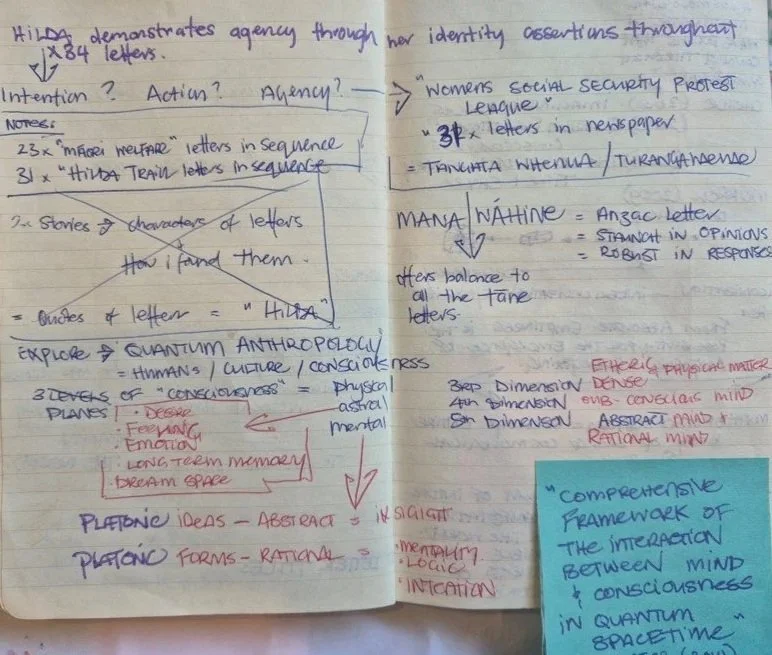 HiLDA demonstrates agency through her identity assertions throughout
x34 letters.
Intention? Action? Agency?
NOTES:
23 x "MāORI WELFARE" letters in sequence
31 x "HiLDA TRAiL letters in sequence
Stories & characters of letters
How i found them.
= Quotes of letters = "HiLDA"
EXPLORE → QUANTUM ANTHROPOLOGY
= HUMANS / CULTURE / CONSCIOUSNESS
3 LEVELS OF "CONSCIOUSNESS" = physical
PLANES astral
mental
· DESIRE
· FEELING
· EMOTION
· LONG TERM MEMORY
· DREAM SPACE
PLATONIC iDEAS - ABSTRACT = iNSIGHT
PLATONIC FORMS - RATIONAL = · MENTALITY
· LOGIC
· INTENTION
"WOMENS SOCIAL SECURITY PROTEST
LEAGUE"
" x letters in newspaper
= TANGATA WHENUA / TURANGAWAEWAE
MANA WĀHINE = Anzac Letter
= STAUNCH IN OPINIONS
= ROBUST IN RESPONSES
offers balance to
all the tāne
letters.
ETHERIC & PHYSICAL MATTER
3RD Dimension DENSE
4th Dimension SUB-CONSCIOUS MIND
5th Dimension ABSTRACT MIND +
RATIONAL MIND
"COMPREHENSIVE
FRAMEWORK OF
THE INTERACTION
BETWEEN MIND
& CONSCIOUSNESS
iN QUANTUM
SPACETIME"